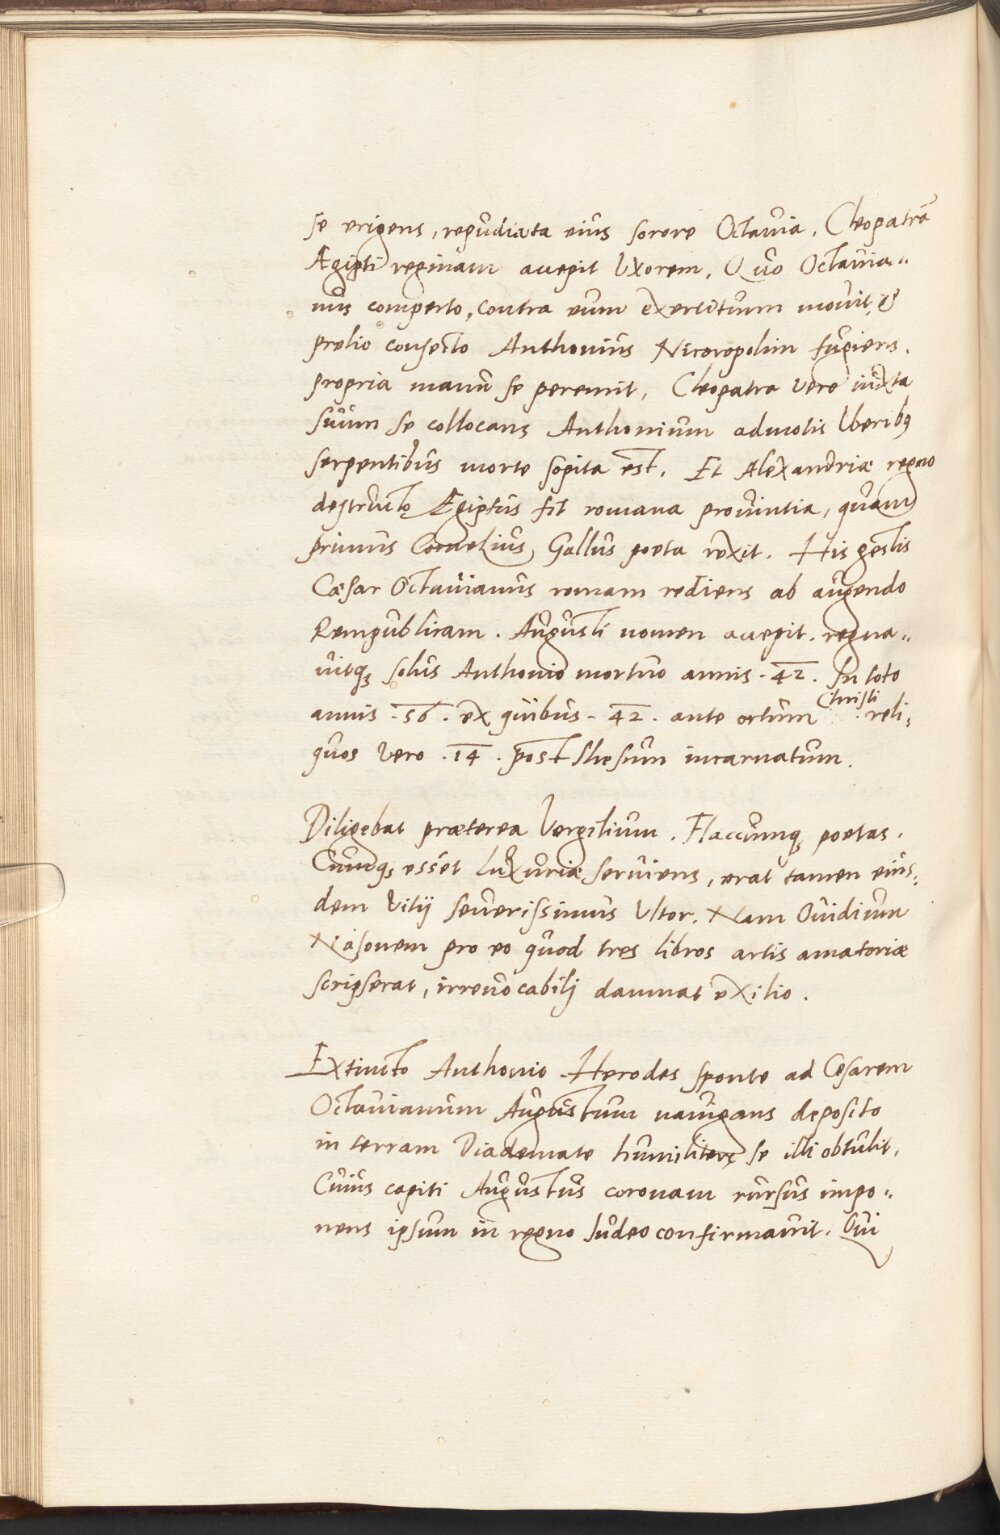 se erigens, repudiata eius sorore Octauia, Cleopatrā
Ægipti reginam accepit Vxorem, Quo Octauia„
nus comperto, contra eum exercitum mouit, &
prelio confecto Anthonius Nicoropolim fugiens,
propria manu se peremit, Cleopatra vero iuxta
suum se collocans Anthonium admotis Vberibꝰ
serpentibus morte sopita est. Et Alexandriæ regno
destructo Ægiptus fit romana prouintia, quam
primus Cornelius Gallus poeta rexit. His gestis
Cæsar Octauianus romam rediens ab augendo
Rempublicam. Augusti nomen accepit. regna„
uitqꝫ solus Anthonio mortuo annis · 42 · In toto
annis · 56 · ex quibus · 42 · ante ortum Christi reli,
quos vero · 14 · post Ihesum incarnatum.
Diligebat præterea Vergilium. Flaccumqꝫ poetas.
Cumqꝫ esset luxuriæ seruiens, erat tamen eius,
dem Vitij seuerissimus Vltor. Nam Ouidium
Nasonem pro eo quod tres libros artis amatoriæ
scripserat, irreuocabilj damnat exilio.
Extincto Anthonio Herodes sponte ad Cesarem
Octauianum Augustum nauigans deposito
in terram Diademate humiliter se illi obtulit.
Cuius capiti Augustus coronam rursus impo„
nens ipsum in regno Iudeo confirmauit. Qui